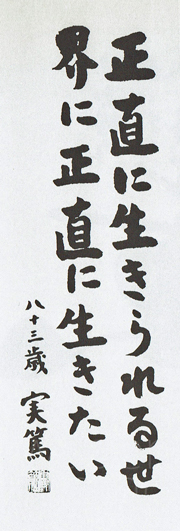 正直に生きられる世
界に正直に生きたい
八十三歳 実篤